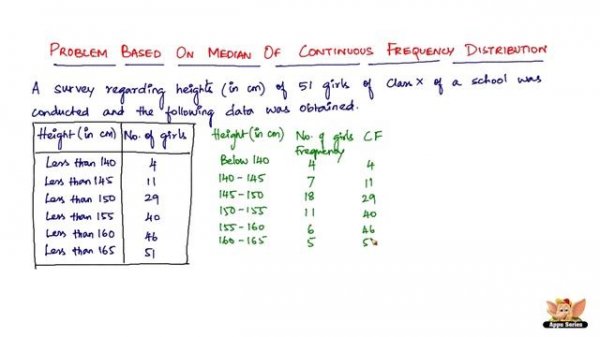 PROBLEM BASED ON MEDIAN OF CONTINUOUS FREQUENCY DISTRIBUTION
A survey regarding heights (in cm) of 51 girls of Class X of a school was
conducted and the following data was obtained.
Height (in cm) No. of girls
Less than 140 4
Less than 145 11
Less than 150 29
Less than 155 40
Less than 160 46
Less than 165 51
Height (in cm) No. of girls CF
Frequency
Below 140 4 4
140-145 7 11
145-150 18 29
150-155 11 40
155-160 6 46
160-165 5 5
Appu Series